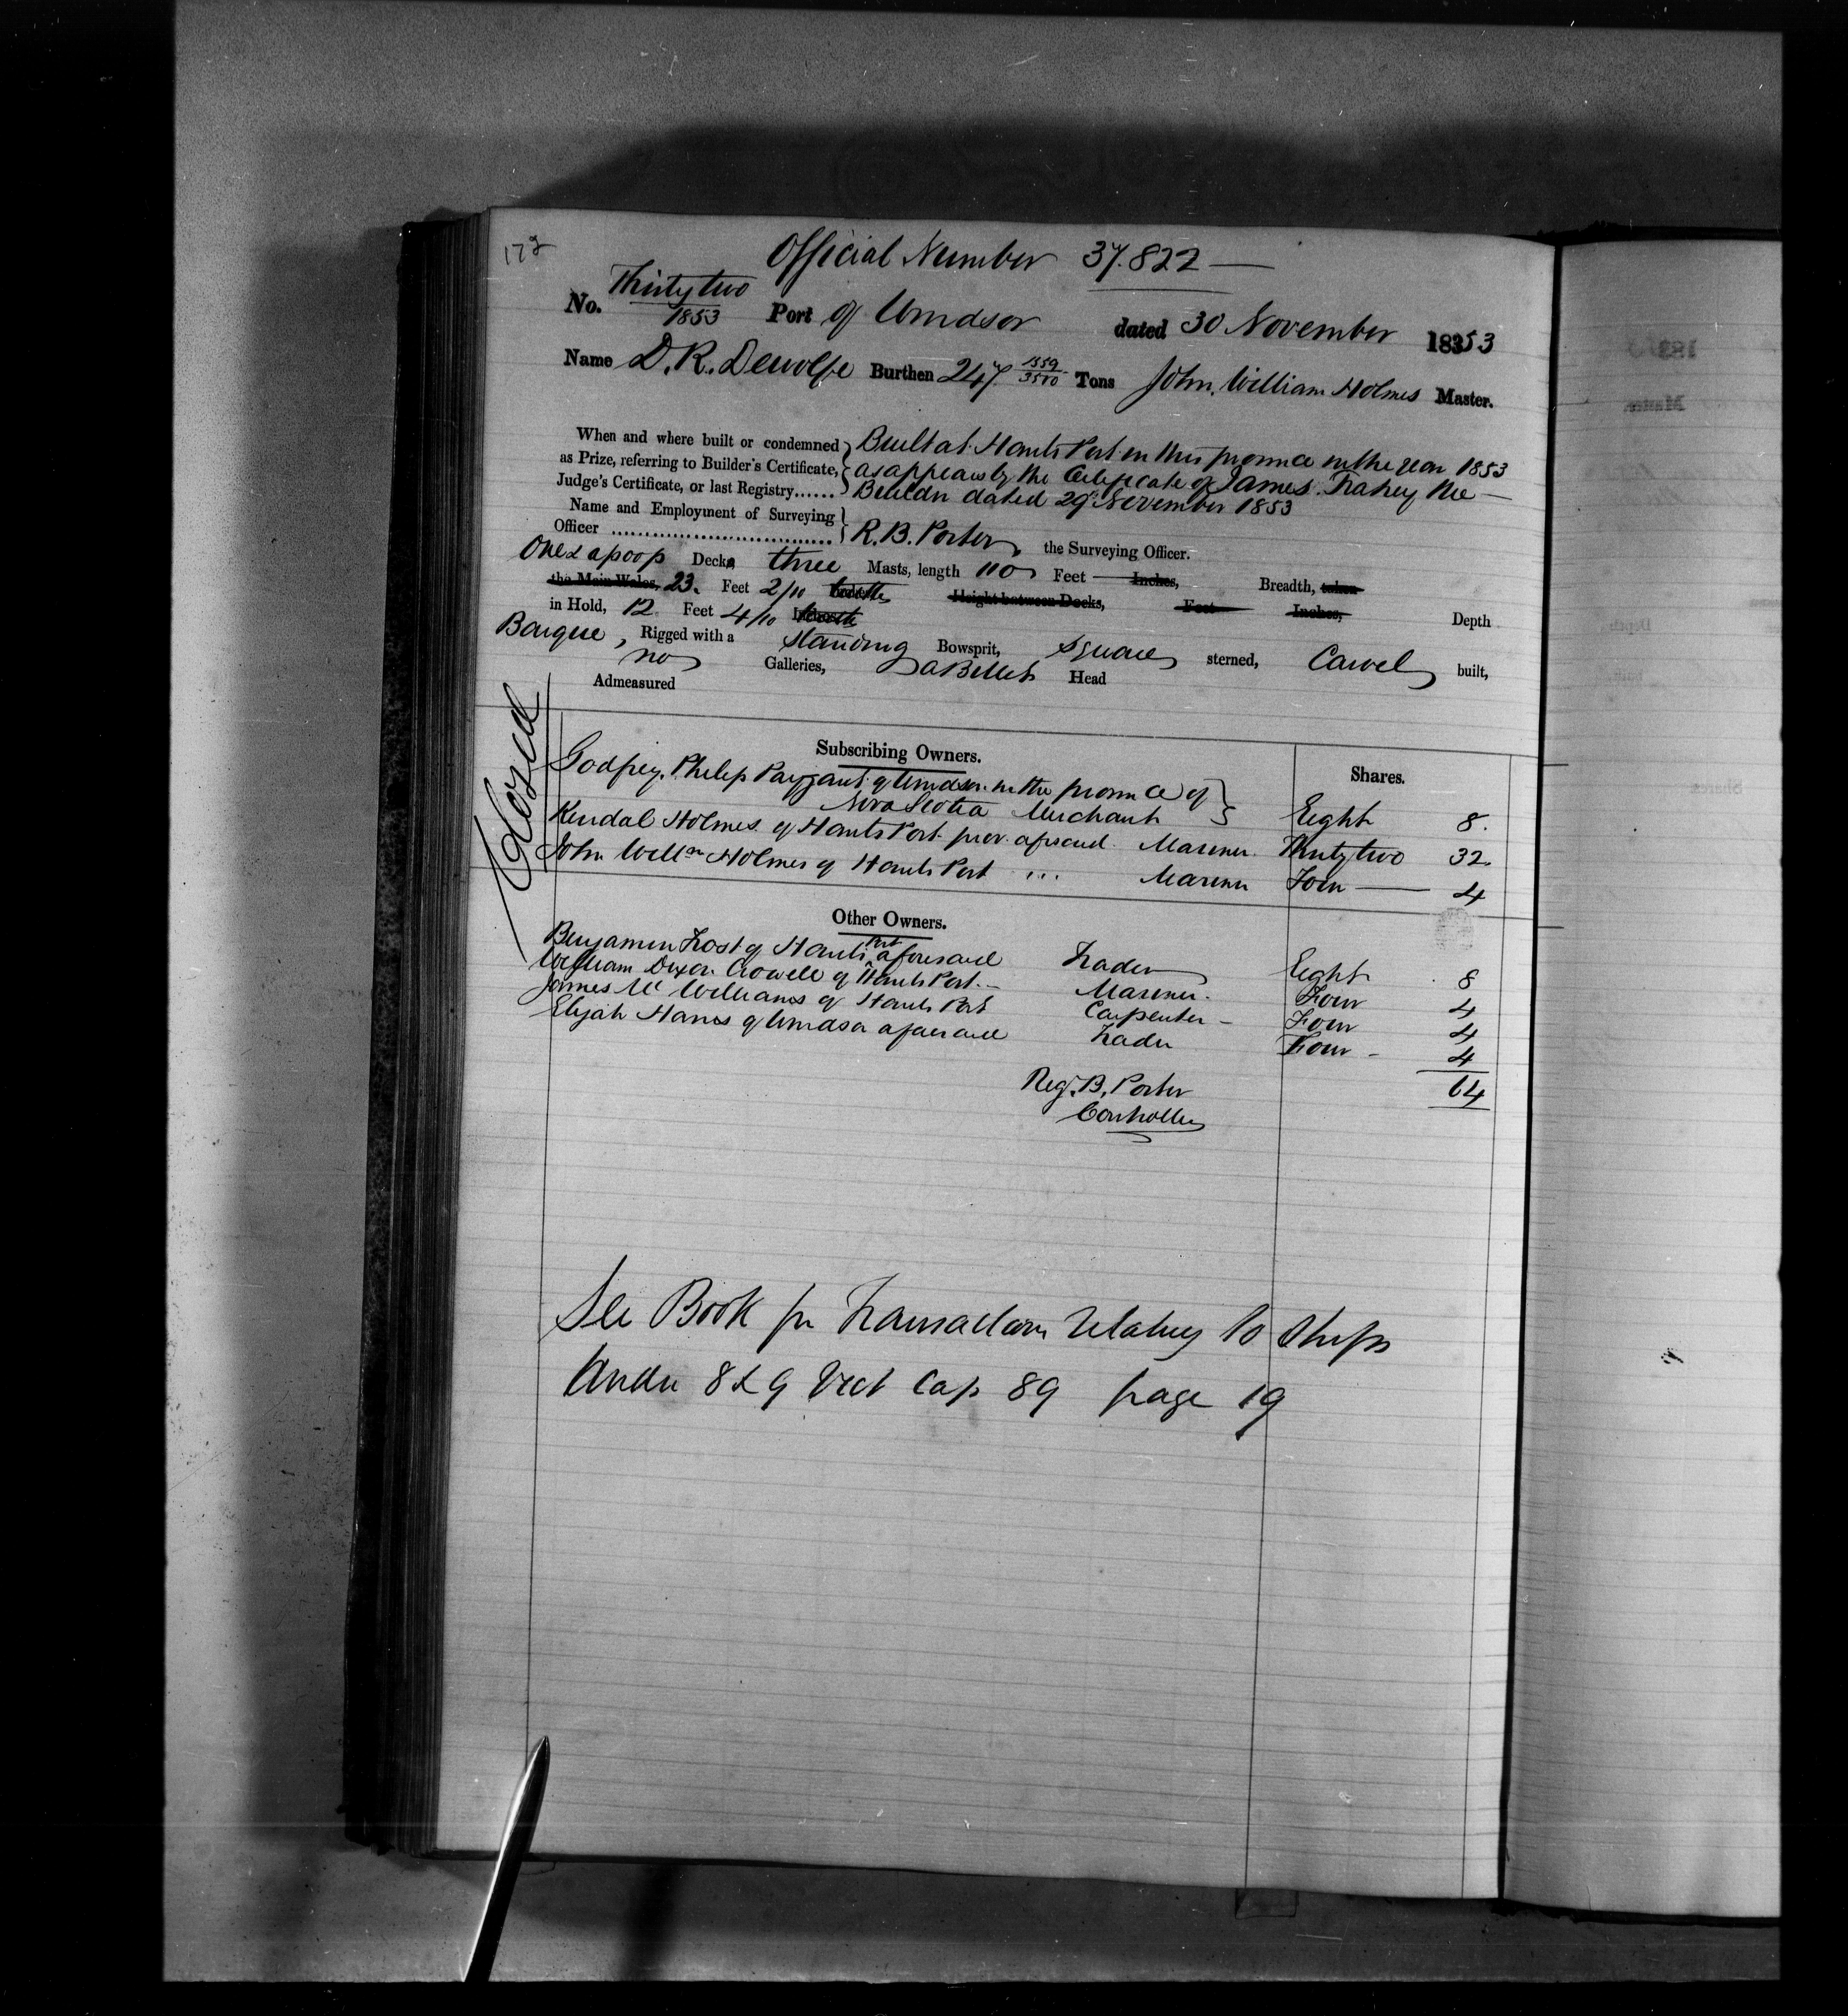 172
Official Number 37.822 —
No. Thirty two / 1853 Port of Windsor dated 30 November 18353
Name D. R. Dewolfe Burthen 247 1559/3500 Tons John William Holmes Master.
When and where built or condemned } Built at Hants Port in this province in the year 1853
as Prize, referring to Builder's Certificate, { as appears by the Certificate of James Frahey the
Judge's Certificate, or last Registry...... } Builder dated 29th November 1853
Name and Employment of Surveying }
Officer ................................. } R. B. Porter, the Surveying Officer.
One & a poop Decks three Masts, length 110 Feet — Inches, Breadth, taken
the Main Wales, 23. Feet 2/10 Height between Decks, Feet Inches, Depth
in Hold, 12 Feet 4/10
Barque, Rigged with a standing Bowsprit, square sterned, Carvel built,
no Galleries, a Billet Head
Admeasured
Closed
Subscribing Owners. Shares.
Godfrey Philip Payzant of Windsor in the province of }
Nova Scotia Merchant } Eight 8.
Kendal Holmes of Hants Port prov. aforsaid Mariner Thirty two 32
John Willm Holmes of Hants Port ,,, Mariner Four — 4
Other Owners.
Benjamin Frost of Hants Port aforesaid Trader Eight 8
William Dixon Crowell of Hants Port — Mariner. Four 4
James Mc Williams of Hants Port Carpenter — Four 4
Elijah Harris of Windsor aforesaid Trader Four - 4
64
Reg. B. Porter
Controller
See Book for Transactions relating to Ships
Under 8 & 9 Vict Cap 89 page 19